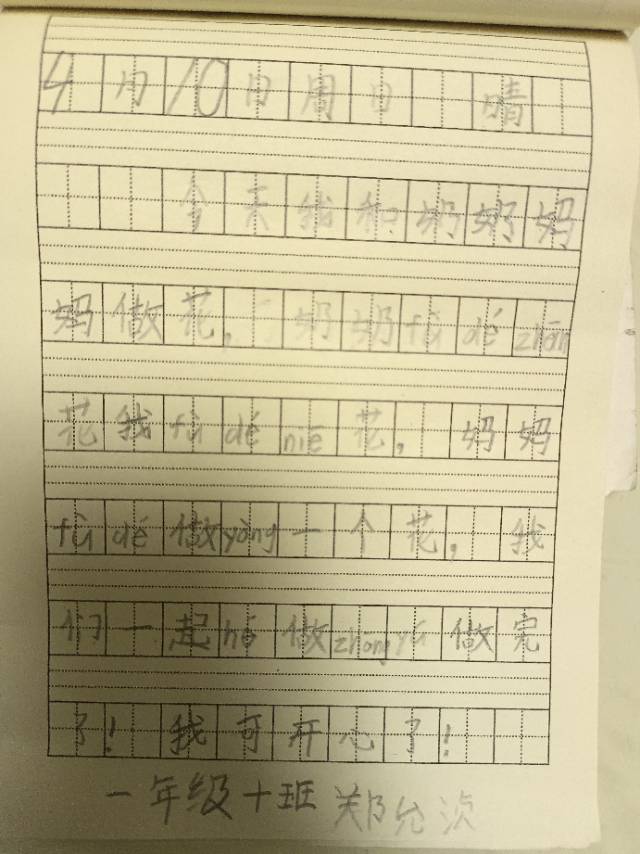 4月10日周日 晴
今天我和奶奶妈
妈做花，奶奶fù dé zhōn
花我fù dé niē花，妈妈
fù dé做yàng一个花，我
们一起hé做zhōng yú做完
了！我可开心了！
一年级十班 郑允